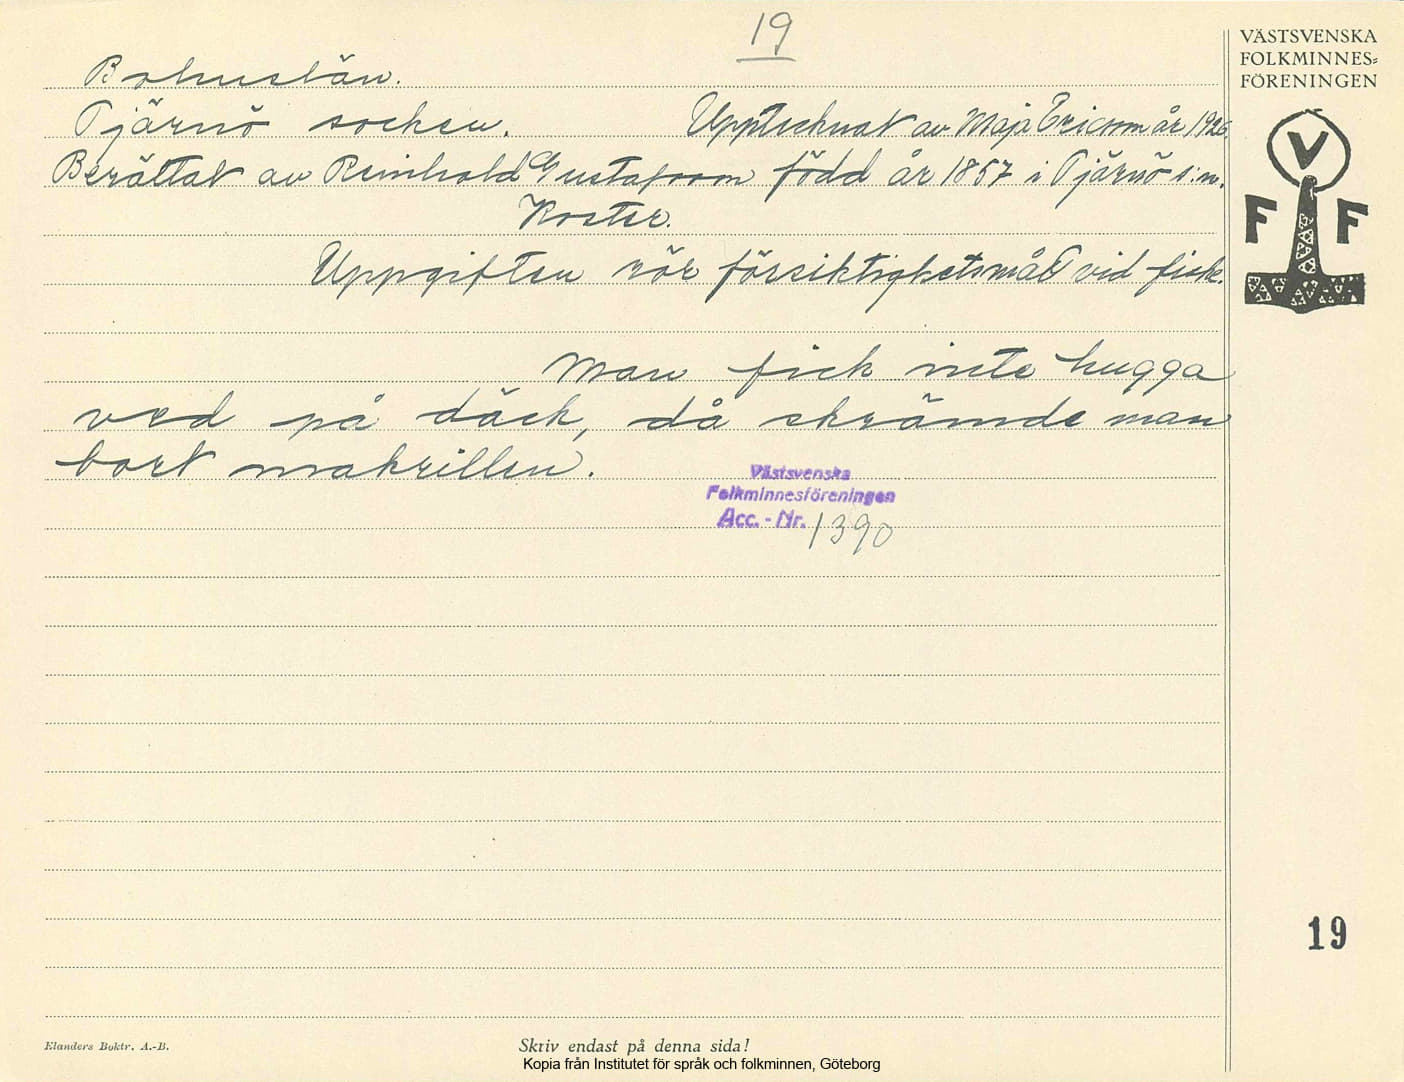 19
VÄSTSVENSKA
FOLKMINNES=
FÖRENINGEN
Bohuslän.
Tjärnö socken. Upptecknat av Maja Ericson år 1926
Berättat av Reinhold Gustafsson född år 1857 i Tjärnö s:n.
Koster.
Uppgiften rör försiktighetsmått vid fiske.
V
F F
Man fick inte hugga
ved på däck, då skrämde man
bort makrillen.
Västsvenska
Folkminnesföreningen
Acc. - Nr. 1390
19
Elanders Boktr. A.-B.
Skriv endast på denna sida!
Kopia från Institutet för språk och folkminnen, Göteborg